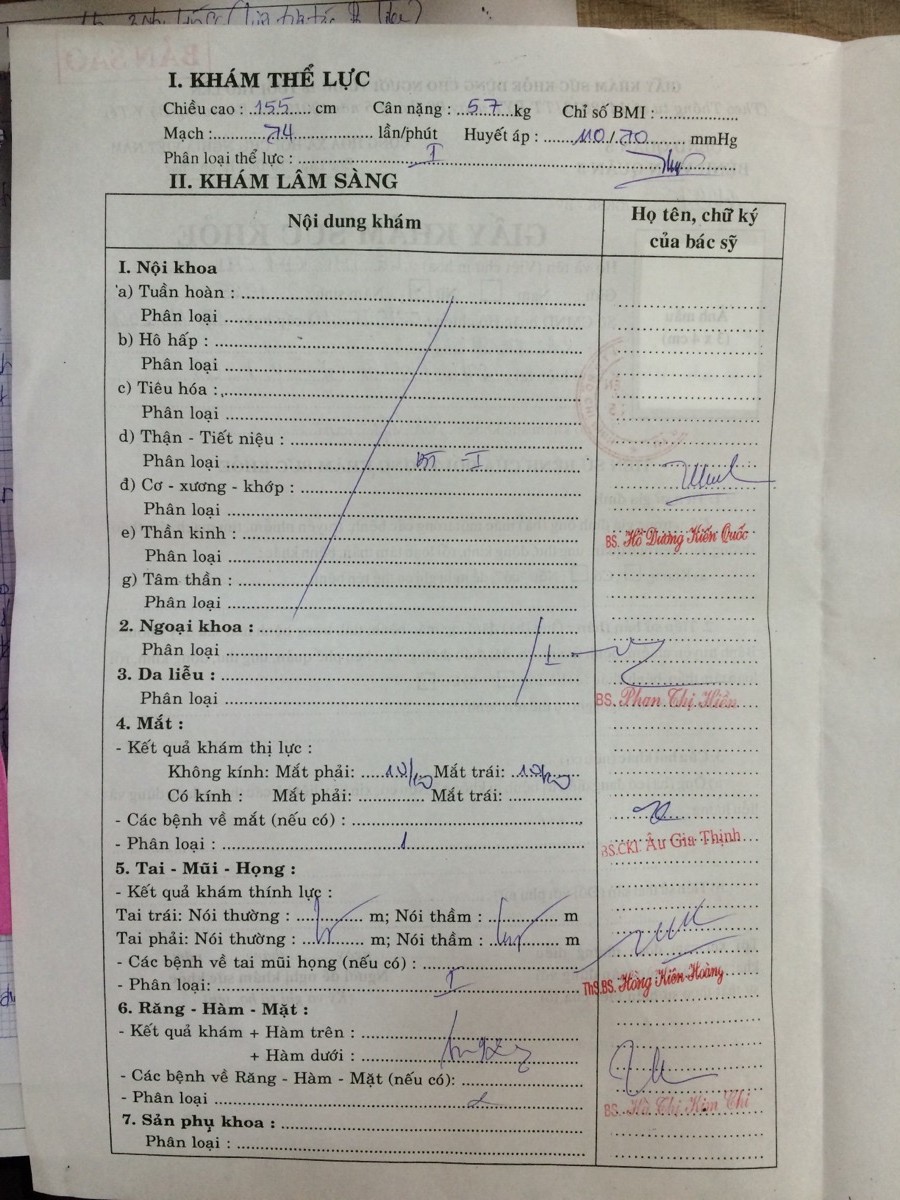 BẢN SAO
I. KHÁM THỂ LỰC
Chiều cao : 155 cm Cân nặng : 57 kg Chỉ số BMI : ..................
Mạch : 74 lần/phút Huyết áp : 110/70 mmHg
Phân loại thể lực : I
II. KHÁM LÂM SÀNG
Nội dung khám
Họ tên, chữ ký
của bác sỹ
I. Nội khoa
a) Tuần hoàn :
Phân loại
b) Hô hấp :
Phân loại
c) Tiêu hóa :
Phân loại
d) Thận - Tiết niệu :
Phân loại BT - I
đ) Cơ - xương - khớp :
Phân loại
e) Thần kinh :
BS. Hồ Dương Kiến Quốc
Phân loại
g) Tâm thần :
Phân loại
2. Ngoại khoa :
Phân loại I
3. Da liễu :
Phân loại
BS. Phan Thị Hiền
4. Mắt :
- Kết quả khám thị lực :
Không kính: Mắt phải: 10/10 Mắt trái: 10/10
Có kính : Mắt phải: .............. Mắt trái: ...............
- Các bệnh về mắt (nếu có) :
- Phân loại : 1
BS.CKI. Âu Gia Thịnh
5. Tai - Mũi - Họng :
- Kết quả khám thính lực :
Tai trái: Nói thường : m; Nói thầm : m
Tai phải: Nói thường : m; Nói thầm : m
- Các bệnh về tai mũi họng (nếu có) :
- Phân loại: I
ThS.BS. Hồng Kiến Hoàng
6. Răng - Hàm - Mặt :
- Kết quả khám + Hàm trên :
+ Hàm dưới :
- Các bệnh về Răng - Hàm - Mặt (nếu có):
- Phân loại
BS. Hồ Thị Kim Chi
7. Sản phụ khoa :
Phân loại :